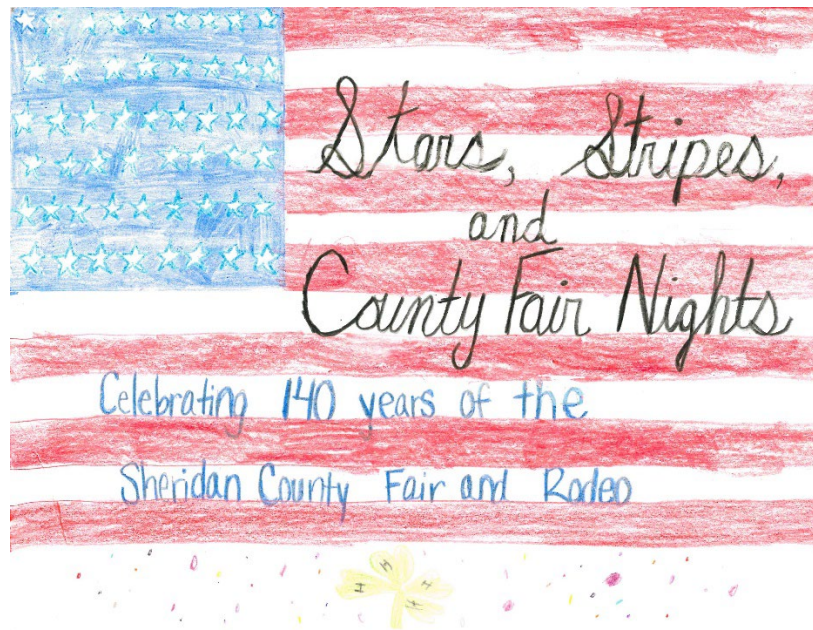 Stars, Stripes,
and
County Fair Nights
Celebrating 140 years of the
Sheridan County Fair and Rodeo
H H H H